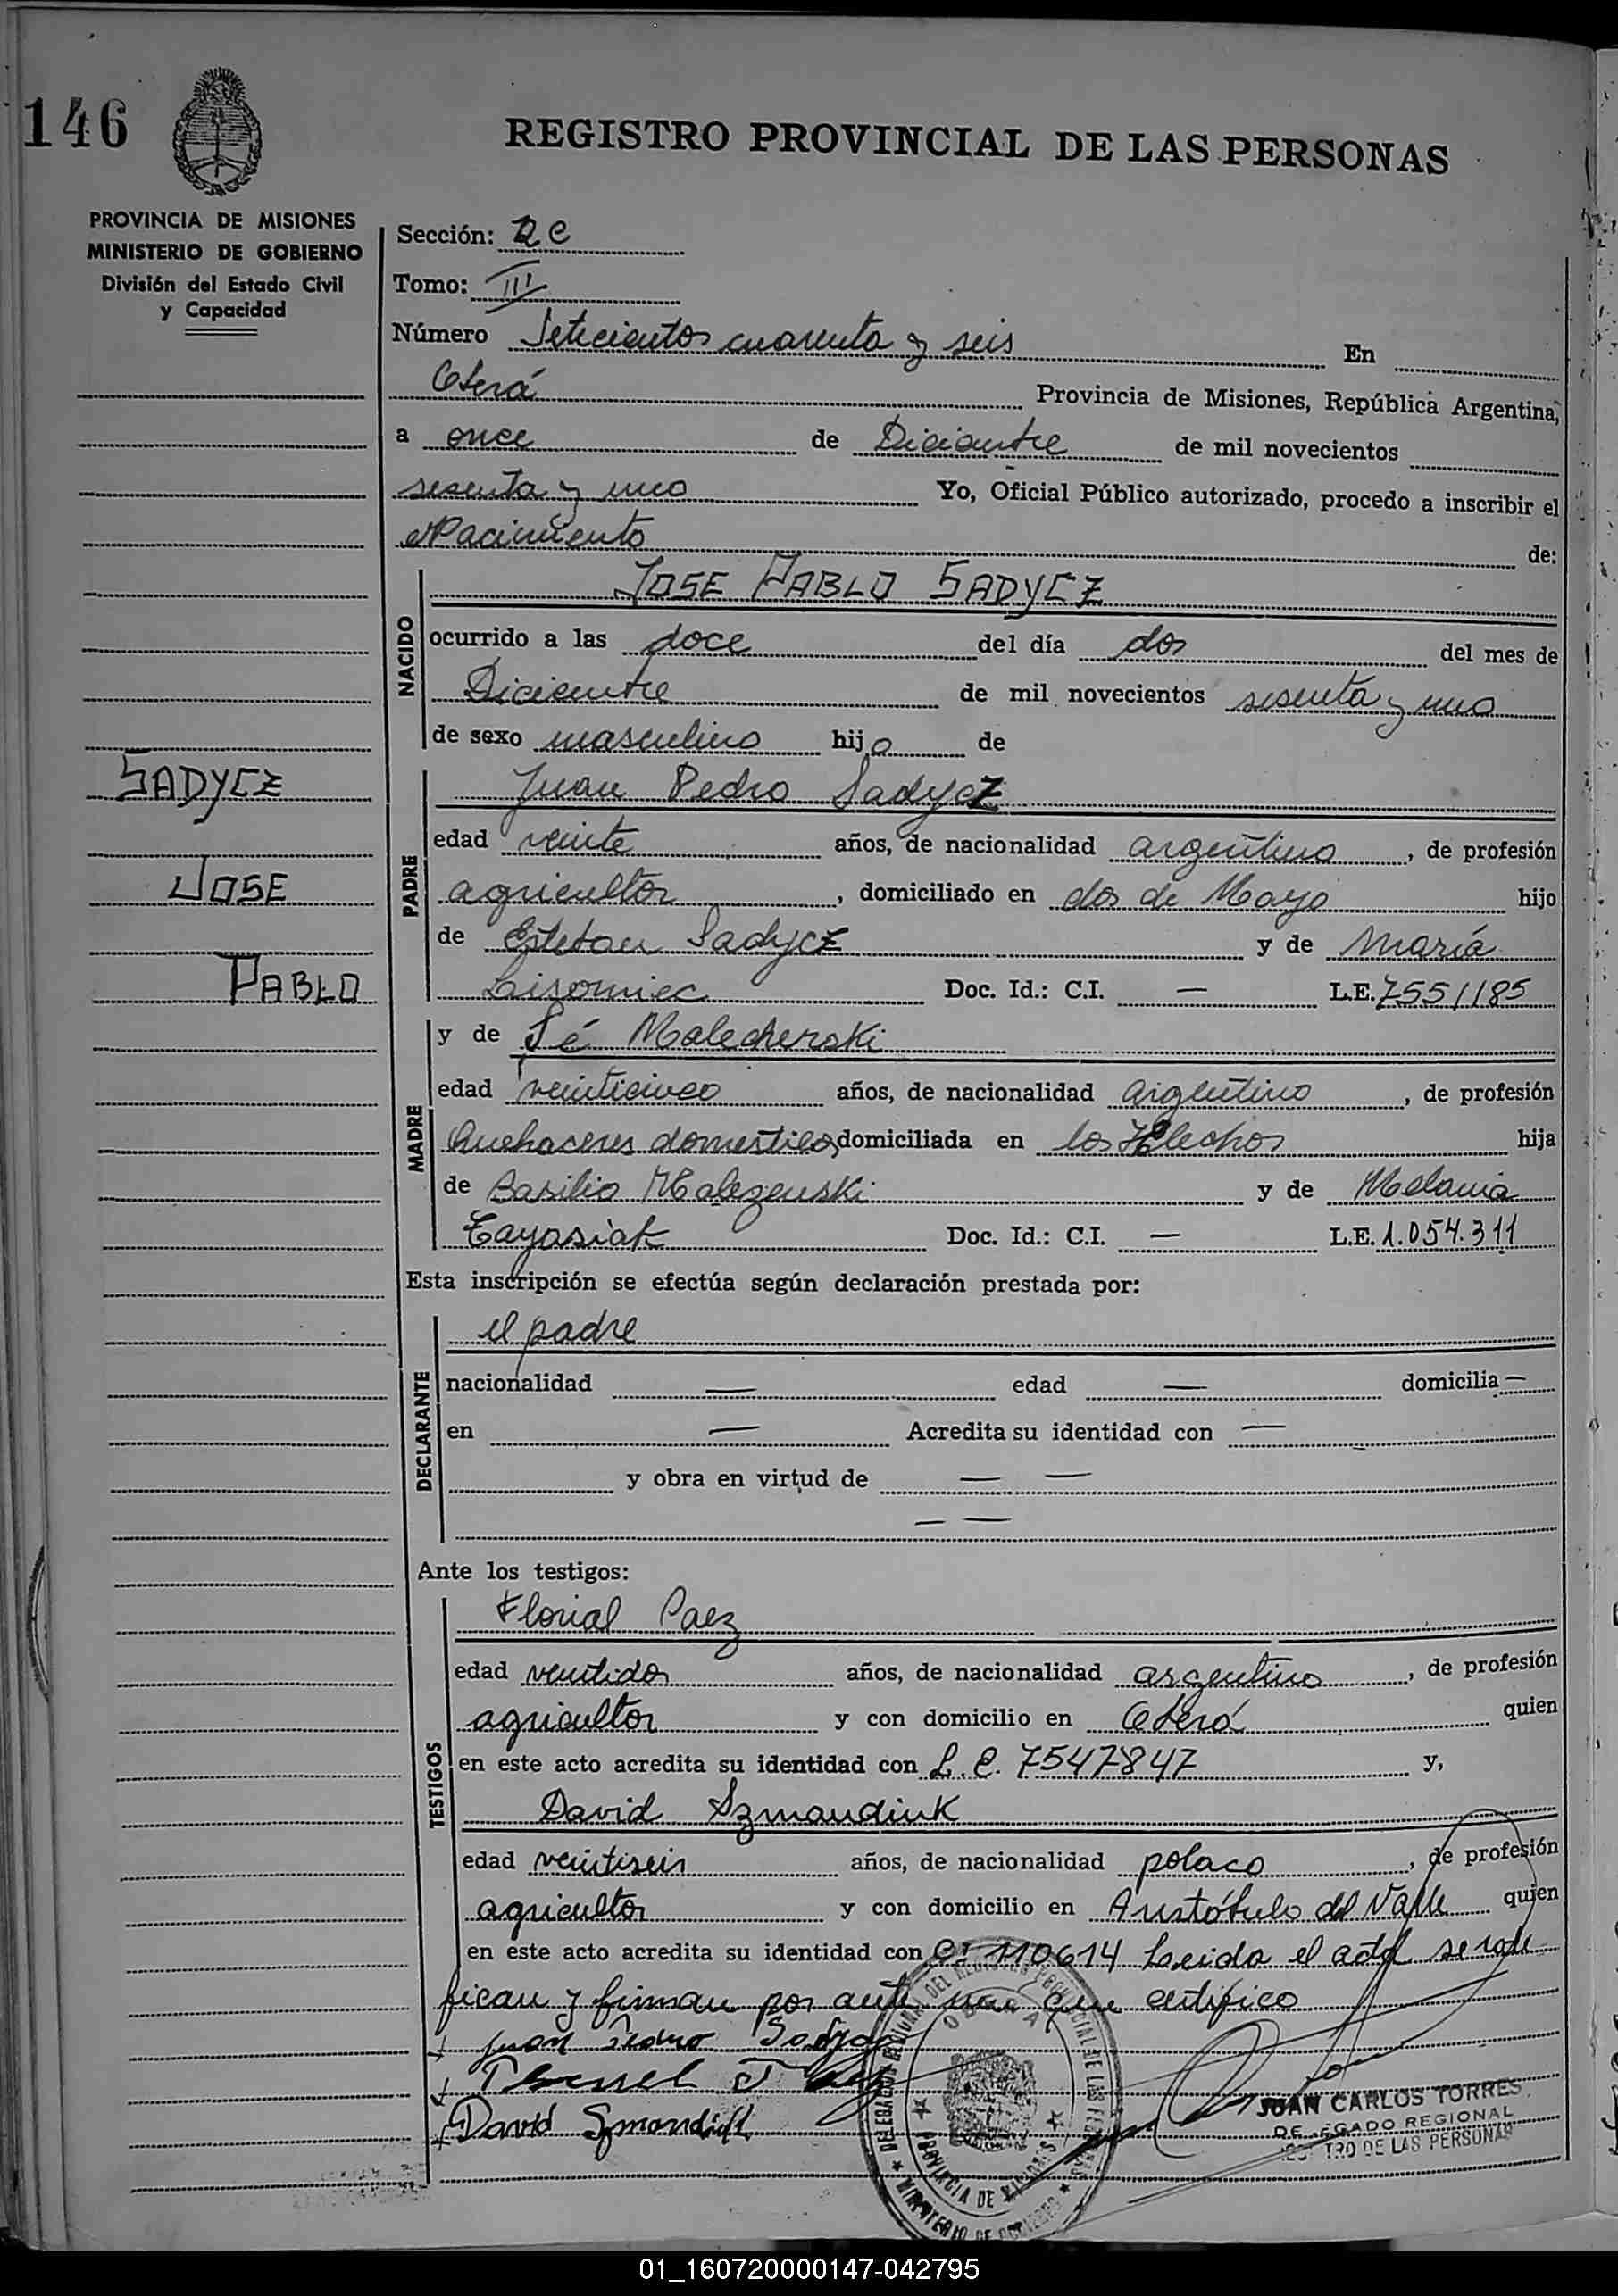 146
REGISTRO PROVINCIAL DE LAS PERSONAS
PROVINCIA DE MISIONES
MINISTERIO DE GOBIERNO
División del Estado Civil
y Capacidad
Sección: 2C
Tomo: III
Número Setecientos cuarenta y seis En
Oberá Provincia de Misiones, República Argentina,
a once de Diciembre de mil novecientos
sesenta y uno Yo, Oficial Público autorizado, procedo a inscribir el
Nacimiento de:
NACIDO
JOSE PABLO SADYCZ
ocurrido a las doce del día dos del mes de
Diciembre de mil novecientos sesenta y uno
de sexo masculino hijo de
SADYCZ
JOSE
PABLO
PADRE
Juan Pedro Sadycz
edad veinte años, de nacionalidad argentino, de profesión
agricultor, domiciliado en dos de Mayo hijo
de Esteban Sadycz y de María
Lisomiec Doc. Id.: C.I. — L.E. 7551185
MADRE
y de Malecherski
edad veinticinco años, de nacionalidad argentino, de profesión
Quehaceres domesticos, domiciliada en los Helechos hija
de Basilio Malezenski y de Melania
Doc. Id.: C.I. — L.E. 1.054.311
Esta inscripción se efectúa según declaración prestada por:
DECLARANTE
el padre
nacionalidad — edad — domicilia —
en — Acredita su identidad con —
y obra en virtud de — —
— —
Ante los testigos:
TESTIGOS
Florial Paez
edad ventidos años, de nacionalidad argentino, de profesión
agricultor y con domicilio en Oberá quien
en este acto acredita su identidad con L.E. 7547847 y,
David Szmaudiuk
edad veintiseis años, de nacionalidad polaco, de profesión
agricultor y con domicilio en Aristóbulo del Valle quien
en este acto acredita su identidad con CI 110614 Leida el acta se rati
fican y firman por ante mi que certifico
Juan Pedro
David
JUAN CARLOS TORRES
DELEGADO REGIONAL
REGISTRO DE LAS PERSONAS
OBERA
PROVINCIA DE MISIONES
MINISTERIO DE GOBIERNO
01_160720000147-042795